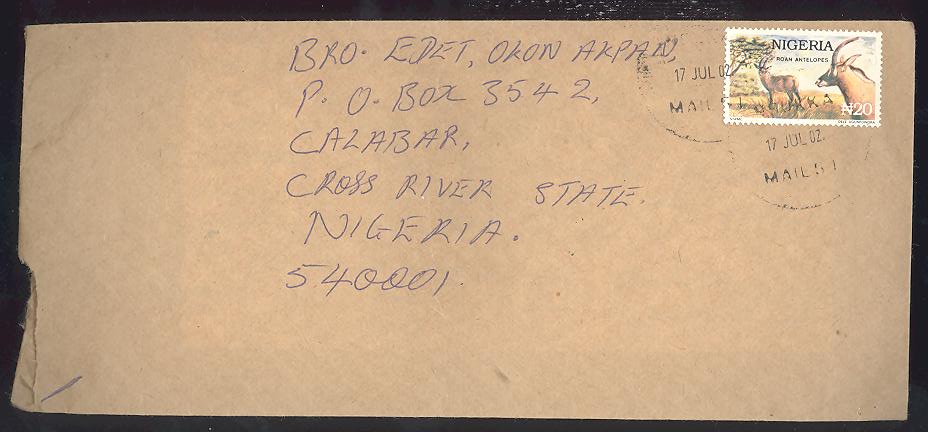 BRO. EDET, OKON AKPAN
P. O. BOX 3542,
CALABAR,
CROSS RIVER STATE.
NIGERIA.
540001.
NIGERIA
ROAN ANTELOPES
₦20
17 JUL 02
MAIL 5 1
17 JUL 02.
MAIL 5 1